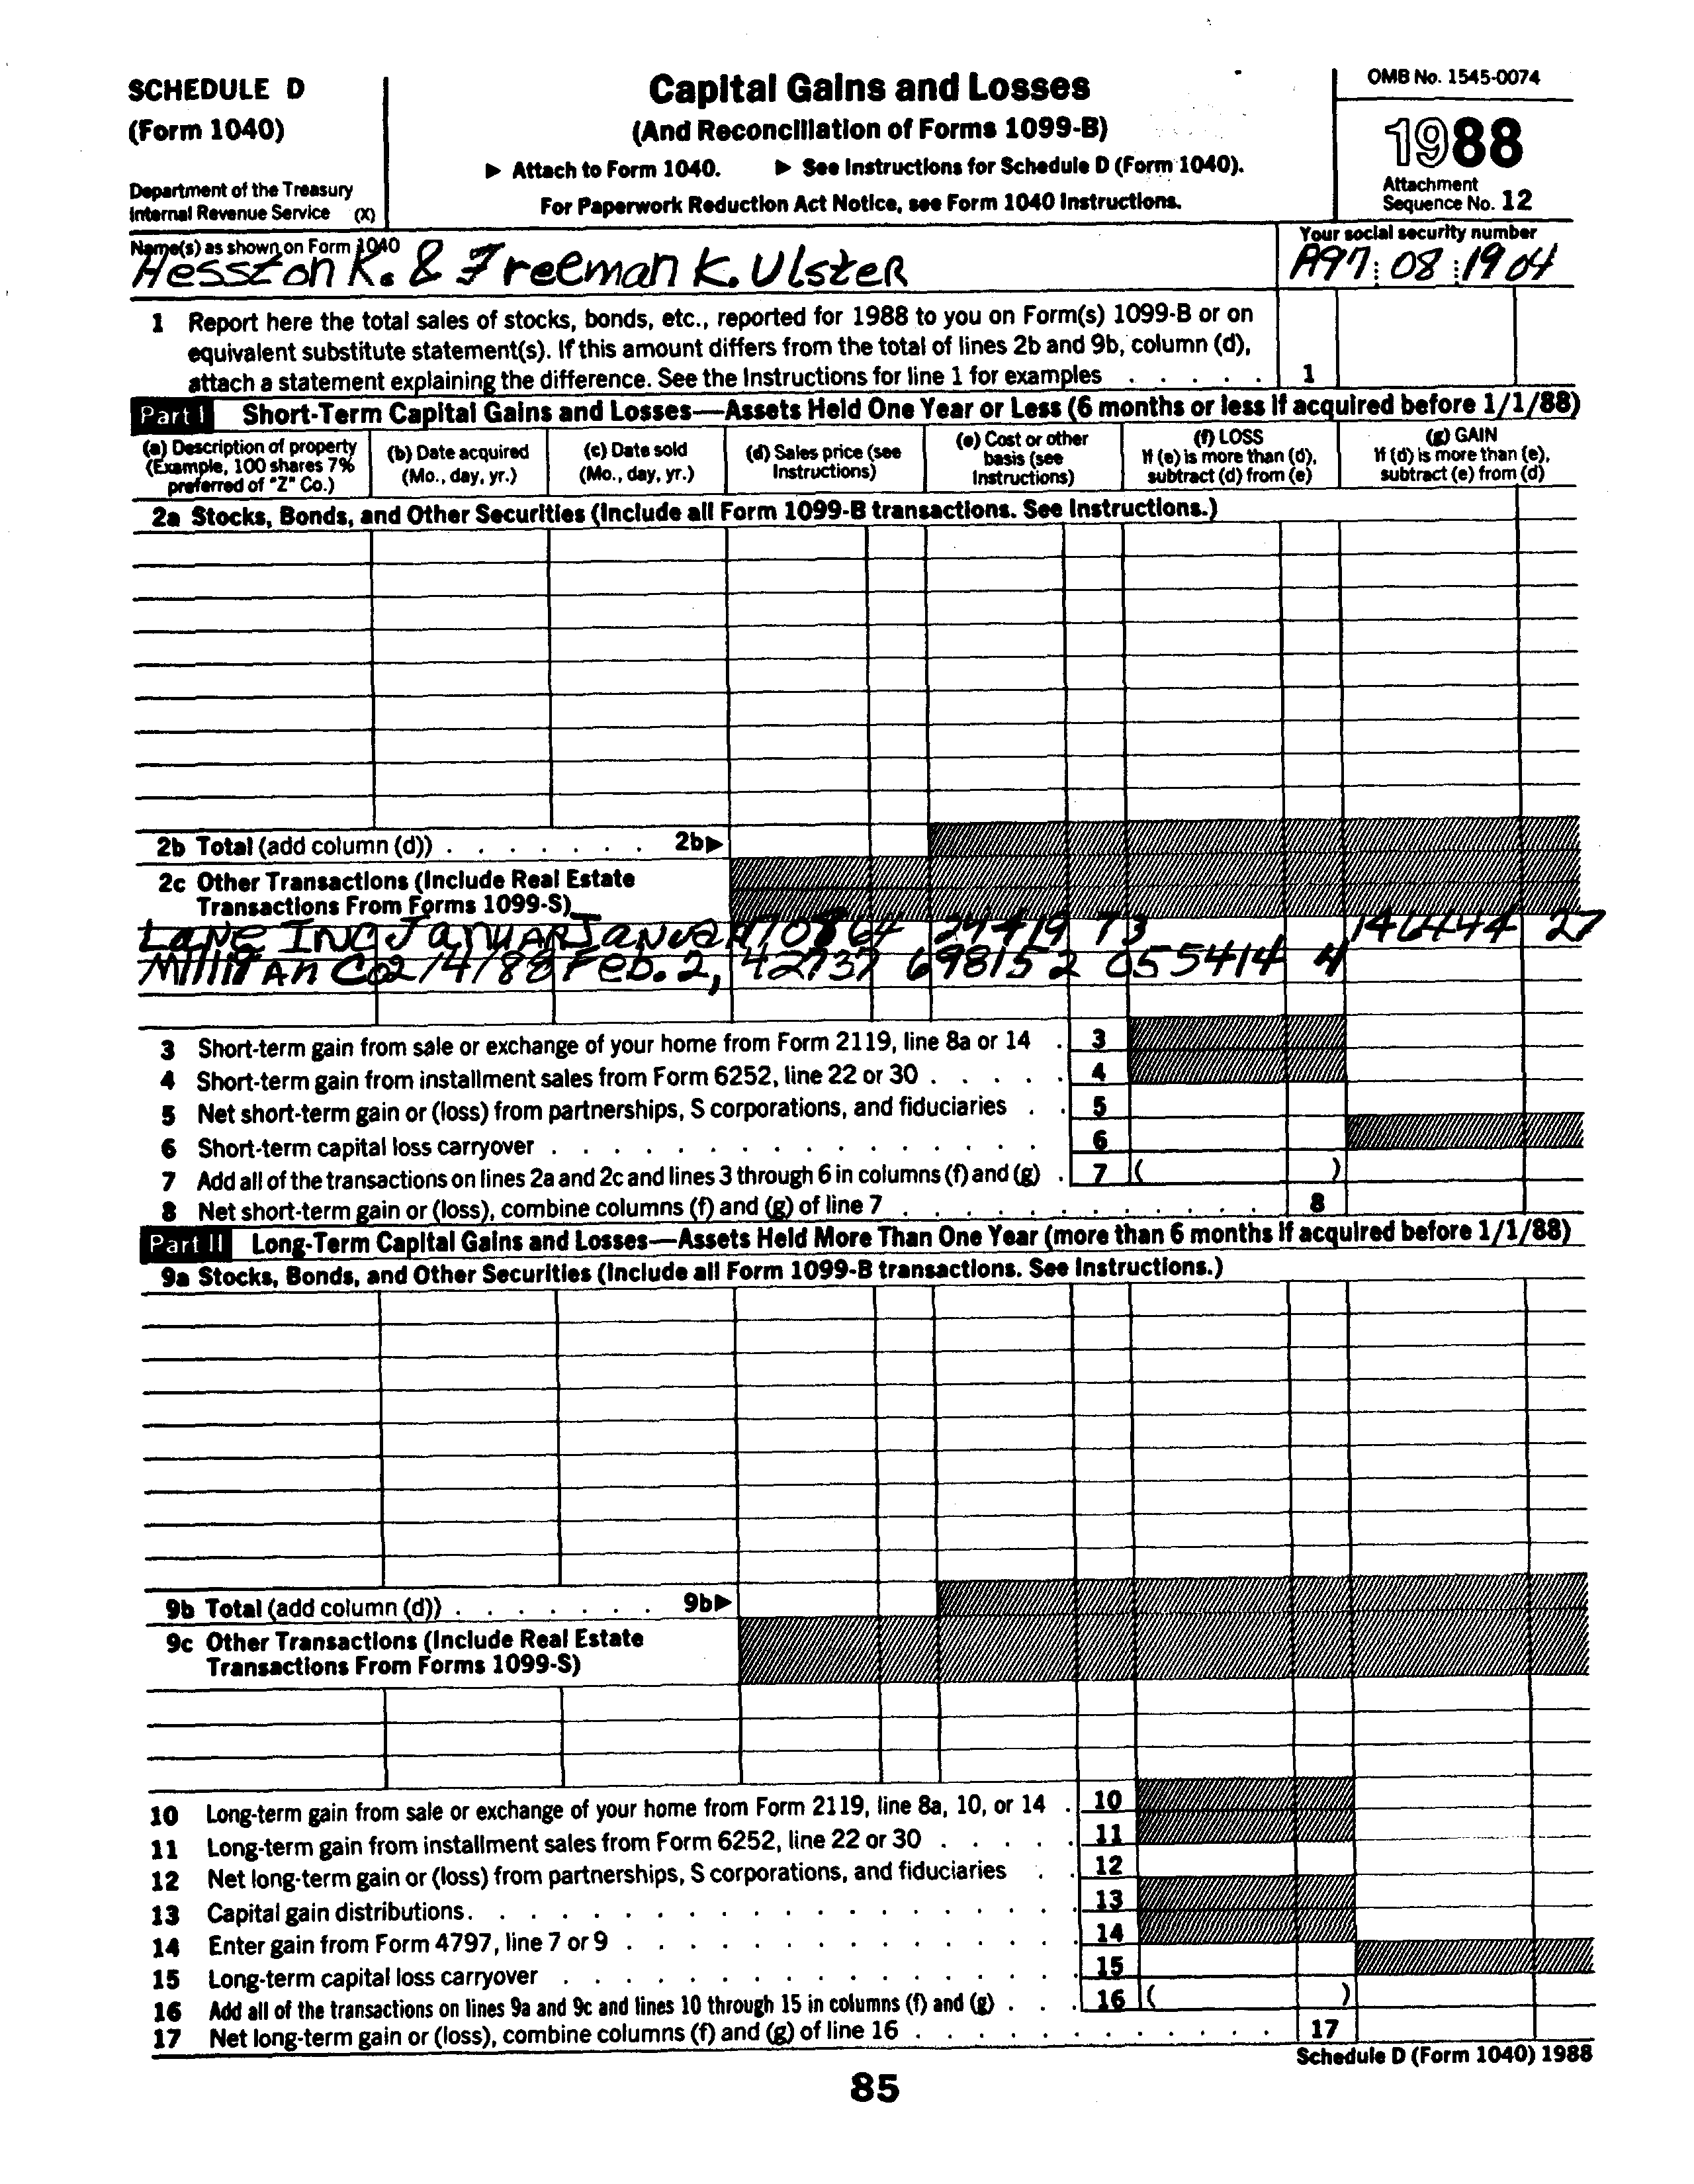 SCHEDULE D
(Form 1040)
Department of the Treasury
Internal Revenue Service (X)
Capital Gains and Losses
(And Reconciliation of Forms 1099-B)
▶ Attach to Form 1040. ▶ See Instructions for Schedule D (Form 1040).
For Paperwork Reduction Act Notice, see Form 1040 Instructions.
OMB No. 1545-0074
1988
Attachment
Sequence No. 12
Name(s) as shown on Form 1040
Hesston K. & Freeman K. Ulster
Your social security number
A97 08 1904
1 Report here the total sales of stocks, bonds, etc., reported for 1988 to you on Form(s) 1099-B or on
equivalent substitute statement(s). If this amount differs from the total of lines 2b and 9b, column (d),
attach a statement explaining the difference. See the Instructions for line 1 for examples . . . . . 1
Part I Short-Term Capital Gains and Losses—Assets Held One Year or Less (6 months or less if acquired before 1/1/88)
(a) Description of property
(Example, 100 shares 7%
preferred of "Z" Co.)
(b) Date acquired
(Mo., day, yr.)
(c) Date sold
(Mo., day, yr.)
(d) Sales price (see
Instructions)
(e) Cost or other
basis (see
Instructions)
(f) LOSS
If (e) is more than (d),
subtract (d) from (e)
(g) GAIN
If (d) is more than (e),
subtract (e) from (d)
2a Stocks, Bonds, and Other Securities (Include all Form 1099-B transactions. See Instructions.)
2b Total (add column (d)) . . . . . . . 2b▶
2c Other Transactions (Include Real Estate
Transactions From Forms 1099-S)
Lane Inc 24419 73 146444 27
2/4/88 Feb. 2, 42737 698152 055414 4
3 Short-term gain from sale or exchange of your home from Form 2119, line 8a or 14 . 3
4 Short-term gain from installment sales from Form 6252, line 22 or 30 . . . . . 4
5 Net short-term gain or (loss) from partnerships, S corporations, and fiduciaries . . 5
6 Short-term capital loss carryover . . . . . . . . . . . . . . . . 6
7 Add all of the transactions on lines 2a and 2c and lines 3 through 6 in columns (f) and (g) . 7 ( )
8 Net short-term gain or (loss), combine columns (f) and (g) of line 7 . . . . . . . . . . . . 8
Part II Long-Term Capital Gains and Losses—Assets Held More Than One Year (more than 6 months if acquired before 1/1/88)
9a Stocks, Bonds, and Other Securities (Include all Form 1099-B transactions. See Instructions.)
9b Total (add column (d)) . . . . . . . 9b▶
9c Other Transactions (Include Real Estate
Transactions From Forms 1099-S)
10 Long-term gain from sale or exchange of your home from Form 2119, line 8a, 10, or 14 . 10
11 Long-term gain from installment sales from Form 6252, line 22 or 30 . . . . . 11
12 Net long-term gain or (loss) from partnerships, S corporations, and fiduciaries . . 12
13 Capital gain distributions . . . . . . . . . . . . . . . . . . . 13
14 Enter gain from Form 4797, line 7 or 9 . . . . . . . . . . . . . . 14
15 Long-term capital loss carryover . . . . . . . . . . . . . . . . 15
16 Add all of the transactions on lines 9a and 9c and lines 10 through 15 in columns (f) and (g) . . . 16 ( )
17 Net long-term gain or (loss), combine columns (f) and (g) of line 16 . . . . . . . . . . . . 17
Schedule D (Form 1040) 1988
85